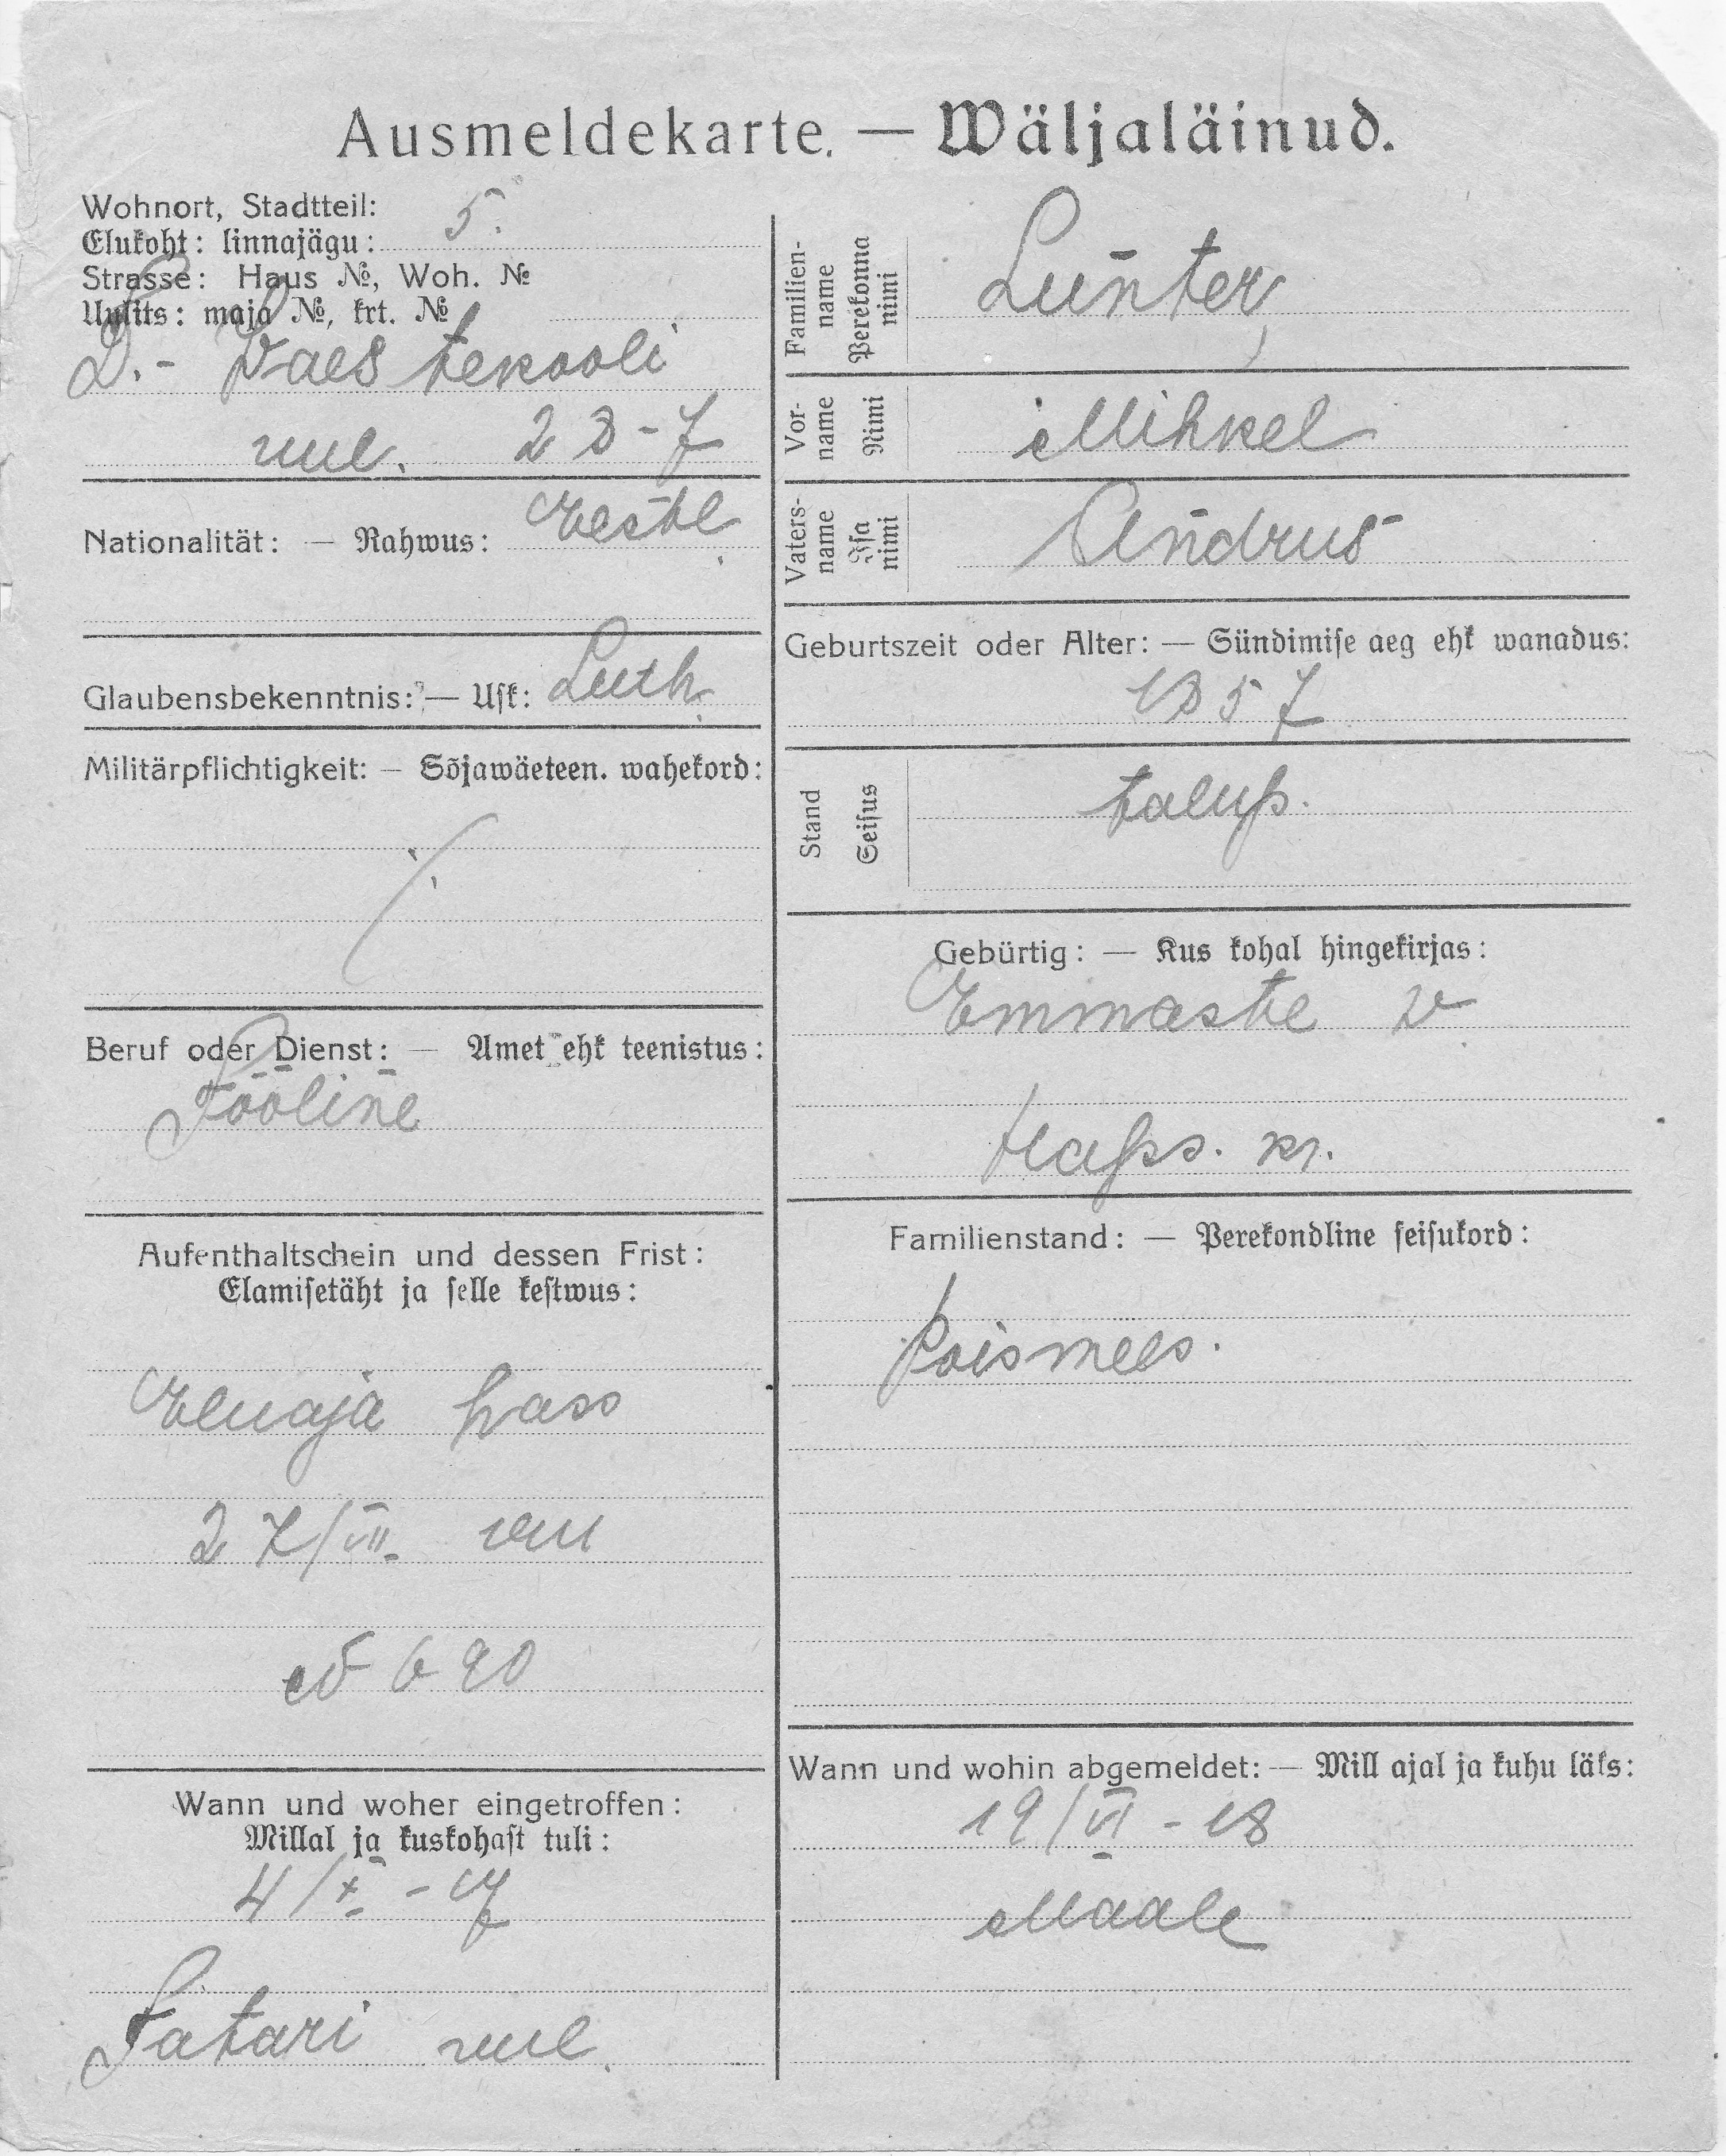 Ausmeldekarte. — Wäljaläinud.
Wohnort, Stadtteil:
Elukoht: linnajägu: 5.
Strasse: Haus №, Woh. №
Uulits: maja №, krt. №
D.- Waestekooli
uul. 28-7
Nationalität: — Rahwus: Eestl.
Glaubensbekenntnis: — Usk: Luth.
Militärpflichtigkeit: — Sõjawäeteen. wahekord:
Beruf oder Dienst: — Amet ehk teenistus:
Tööline
Aufenthaltschein und dessen Frist:
Elamisetäht ja selle kestwus:
Elluaja pass
27/VII.
№ 690
Wann und woher eingetroffen:
Millal ja kuskohast tuli:
4/X - 17
Tatari uul.
Familien-
name
Perekonna
nimi
Lunter,
Vor-
name
Nimi
Mihkel
Vaters-
name
Isa
nimi
Andrus
Geburtszeit oder Alter: — Sündimise aeg ehk wanadus:
1857
Stand
Seisus
talup.
Gebürtig: — Kus kohal hingekirjas:
Emmaste v
Haps. kr.
Familienstand: — Perekondline seisukord:
Poismees.
Wann und wohin abgemeldet: — Mill ajal ja kuhu läks:
19/VI - 18
Maale